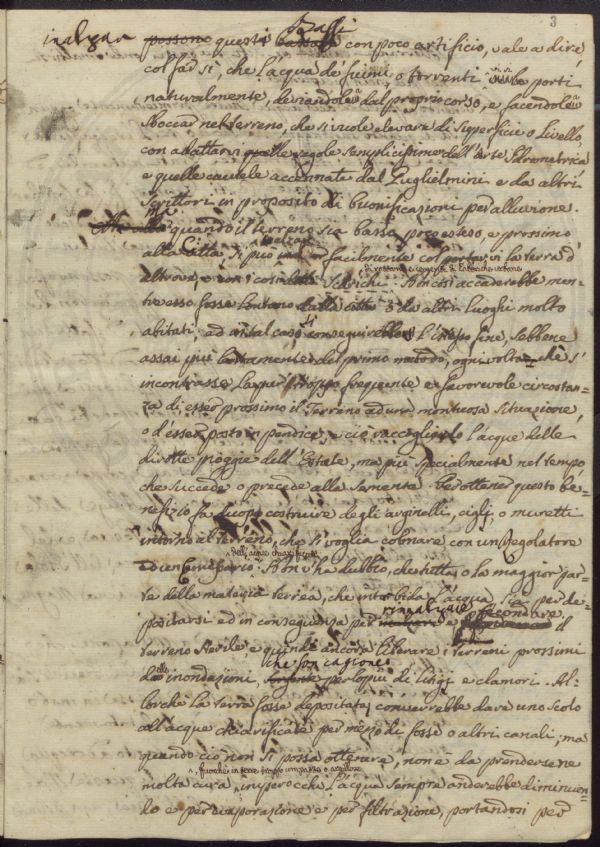 3
inalzare possono questi Bassi con poco artificio, vale a dire
col far sì, che l'acqua de' fiumi, o torrenti vi si porti
naturalmente, deviandola dal proprio corso, e facendola
sboccar nel terreno, che si vuole elevare di superficie o livello,
con adattarvi quelle regole semplicissime dell'arte Idrometrica
e quelle cautele accennate dal Guglielmini e da altri
Scrittori in proposito di buonificazioni per alluvione.
Ma quando il terreno sia basso, poco esteso, e prossimo
alla Città si può inalzar facilmente col portarvi la terra d'
altrove, e con i così detti Scarichi. Non così accaderebbe men-
di rottami e cementi di fabbriche urbane
tre esso fosse lontano dalla città o da altri luoghi molto
abitati; ed in tal caso si conseguirebbe l'istesso fine, sebbene
assai più lentamente del primo metodo, ogni volta che s'
incontrasse la pur troppo frequente e favorevole circostan-
za di esser prossimo il Terreno ad una montuosa situazione,
o d'esser posto in pendice, e ciò raccogliendo l'acque delle
dirotte pioggie dell'Estate, ma più specialmente nel tempo
che succede o precede alla Sementa. Per ottener questo be-
nefizio fa duopo costruire degli arginelli, cigli, o muretti
intorno al Terreno, che si voglia colmare con un Regolatore
dell'acque chiarificate
ed un Emissario. Non v'ha dubbio, che tutta, o la maggior par-
te della materia terrea, che intorbida l'acqua, sia per de-
positarsi ed in conseguenza per rinnalzare e fecondare il
terreno sterile e quindi ancora liberare i terreni prossimi
dalle inondazioni, che son cagione per lo più di litigi e clamori. Al-
lorchè la terra fosse depositata, converrebbe dare uno scolo
all'acque chiarificate per mezzo di fosse o altri canali; ma
quando ciò non si possa ottenere, non è da prendersene
molta cura, imperocchè l'acqua sempre anderebbe diminuen-
do e per evaporazione e per filtrazione, portandosi per